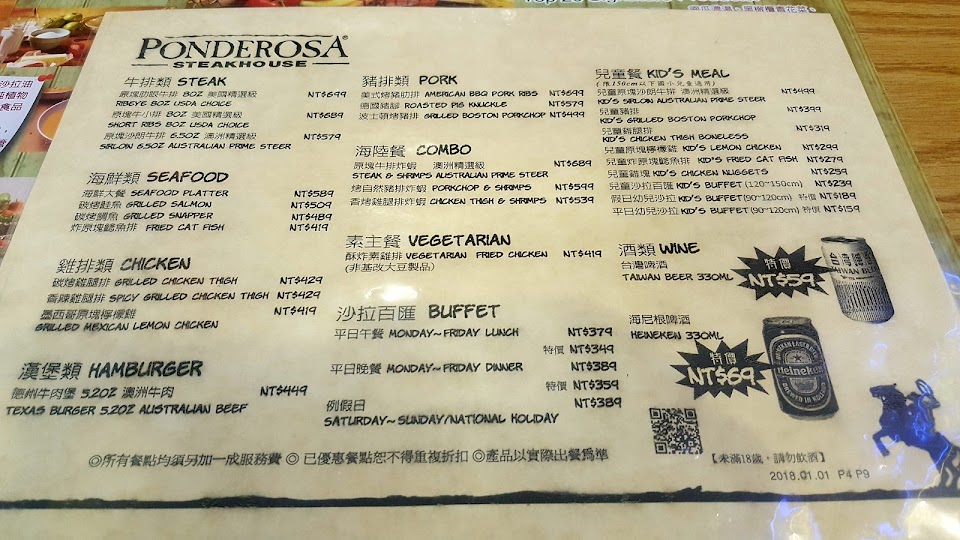 PONDEROSA®
STEAKHOUSE
牛排類 STEAK
原塊肋眼牛排 8OZ 美國精選級 NT$699
RIBEYE 8OZ USDA CHOICE
原塊牛小排 8OZ 美國精選級 NT$689
SHORT RIBS 8OZ USDA CHOICE
原塊沙朗牛排 6.5OZ 澳洲精選級 NT$579
SIRLOIN 6.5OZ AUSTRALIAN PRIME STEER
海鮮類 SEAFOOD
海鮮大餐 SEAFOOD PLATTER NT$589
碳烤鮭魚 GRILLED SALMON NT$509
碳烤鯛魚 GRILLED SNAPPER NT$489
炸原塊鯰魚排 FRIED CAT FISH NT$419
雞排類 CHICKEN
碳烤雞腿排 GRILLED CHICKEN THIGH NT$429
香辣雞腿排 SPICY GRILLED CHICKEN THIGH NT$429
墨西哥原塊檸檬雞 NT$419
GRILLED MEXICAN LEMON CHICKEN
漢堡類 HAMBURGER
德州牛肉堡 5.2OZ 澳洲牛肉 NT$449
TEXAS BURGER 5.2OZ AUSTRALIAN BEEF
豬排類 PORK
美式烤豬肋排 AMERICAN BBQ PORK RIBS NT$699
德國豬腳 ROASTED PIG KNUCKLE NT$579
波士頓烤豬排 GRILLED BOSTON PORKCHOP NT$499
海陸餐 COMBO
原塊牛排炸蝦 澳洲精選級 NT$689
STEAK & SHRIMPS AUSTRALIAN PRIME STEER
烤自然豬排炸蝦 PORKCHOP & SHRIMPS NT$599
香烤雞腿排炸蝦 CHICKEN THIGH & SHRIMPS NT$539
素主餐 VEGETARIAN
酥炸素雞排 VEGETARIAN FRIED CHICKEN NT$419
(非基改大豆製品)
沙拉百匯 BUFFET
平日午餐 MONDAY~FRIDAY LUNCH NT$379
特價 NT$349
平日晚餐 MONDAY~FRIDAY DINNER NT$389
特價 NT$359
例假日 NT$389
SATURDAY~SUNDAY/NATIONAL HOLIDAY
兒童餐 KID'S MEAL
(限150cm以下國小兒童適用)
兒童原塊沙朗牛排 澳洲精選級 NT$499
KID'S SIRLOIN AUSTRALIAN PRIME STEER
兒童豬排 NT$399
KID'S GRILLED BOSTON PORKCHOP
兒童雞腿排 NT$319
KID'S CHICKEN THIGH BONELESS
兒童原塊檸檬雞 KID'S LEMON CHICKEN NT$299
兒童炸原塊鯰魚排 KID'S FRIED CAT FISH NT$279
兒童雞塊 KID'S CHICKEN NUGGETS NT$259
兒童沙拉百匯 KID'S BUFFET(120~150cm) NT$239
假日幼兒沙拉 KID'S BUFFET(90~120cm) 特價 NT$189
平日幼兒沙拉 KID'S BUFFET(90~120cm) 特價 NT$159
酒類 WINE
台灣啤酒
TAIWAN BEER 330ML
特價
NT$59
海尼根啤酒
HEINEKEN 330ML
特價
NT$69
Heineken
【未滿18歲，請勿飲酒】
2018.01.01 P4 P9
◎所有餐點均須另加一成服務費 ◎已優惠餐點恕不得重複折扣 ◎產品以實際出餐為準
沙拉油
食品